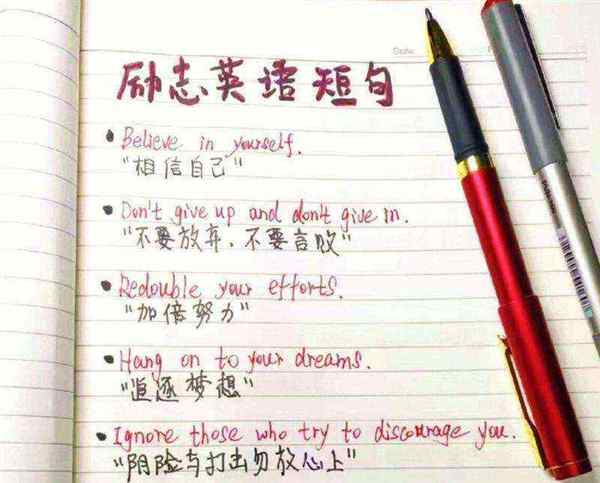 励志英语短句
• Believe in yourself.
"相信自己"
• Don't give up and don't give in.
"不要放弃、不要言败"
• Redouble your efforts.
"加倍努力"
• Hang on to your dreams.
"追逐梦想"
• Ignore those who try to discourage you.
"阴险与打击勿放心上"